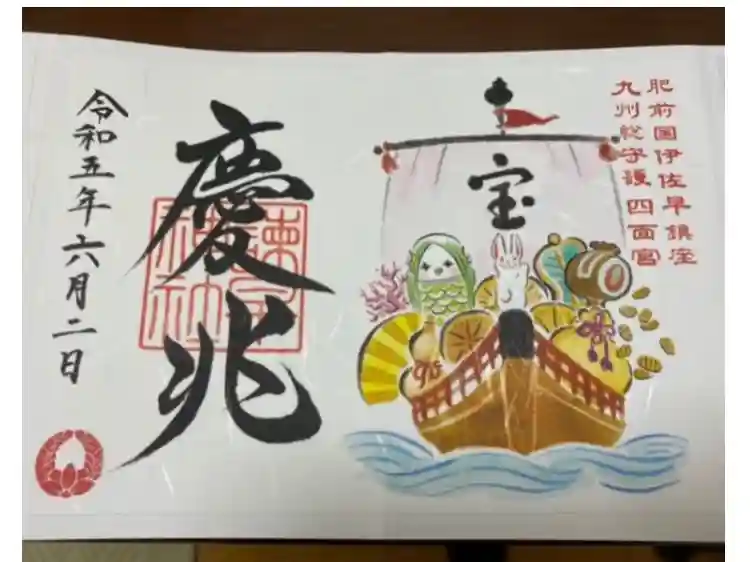 肥前国伊佐早鎮座
九州総守護四面宮
宝
慶兆
諫早神社
令和五年六月二日